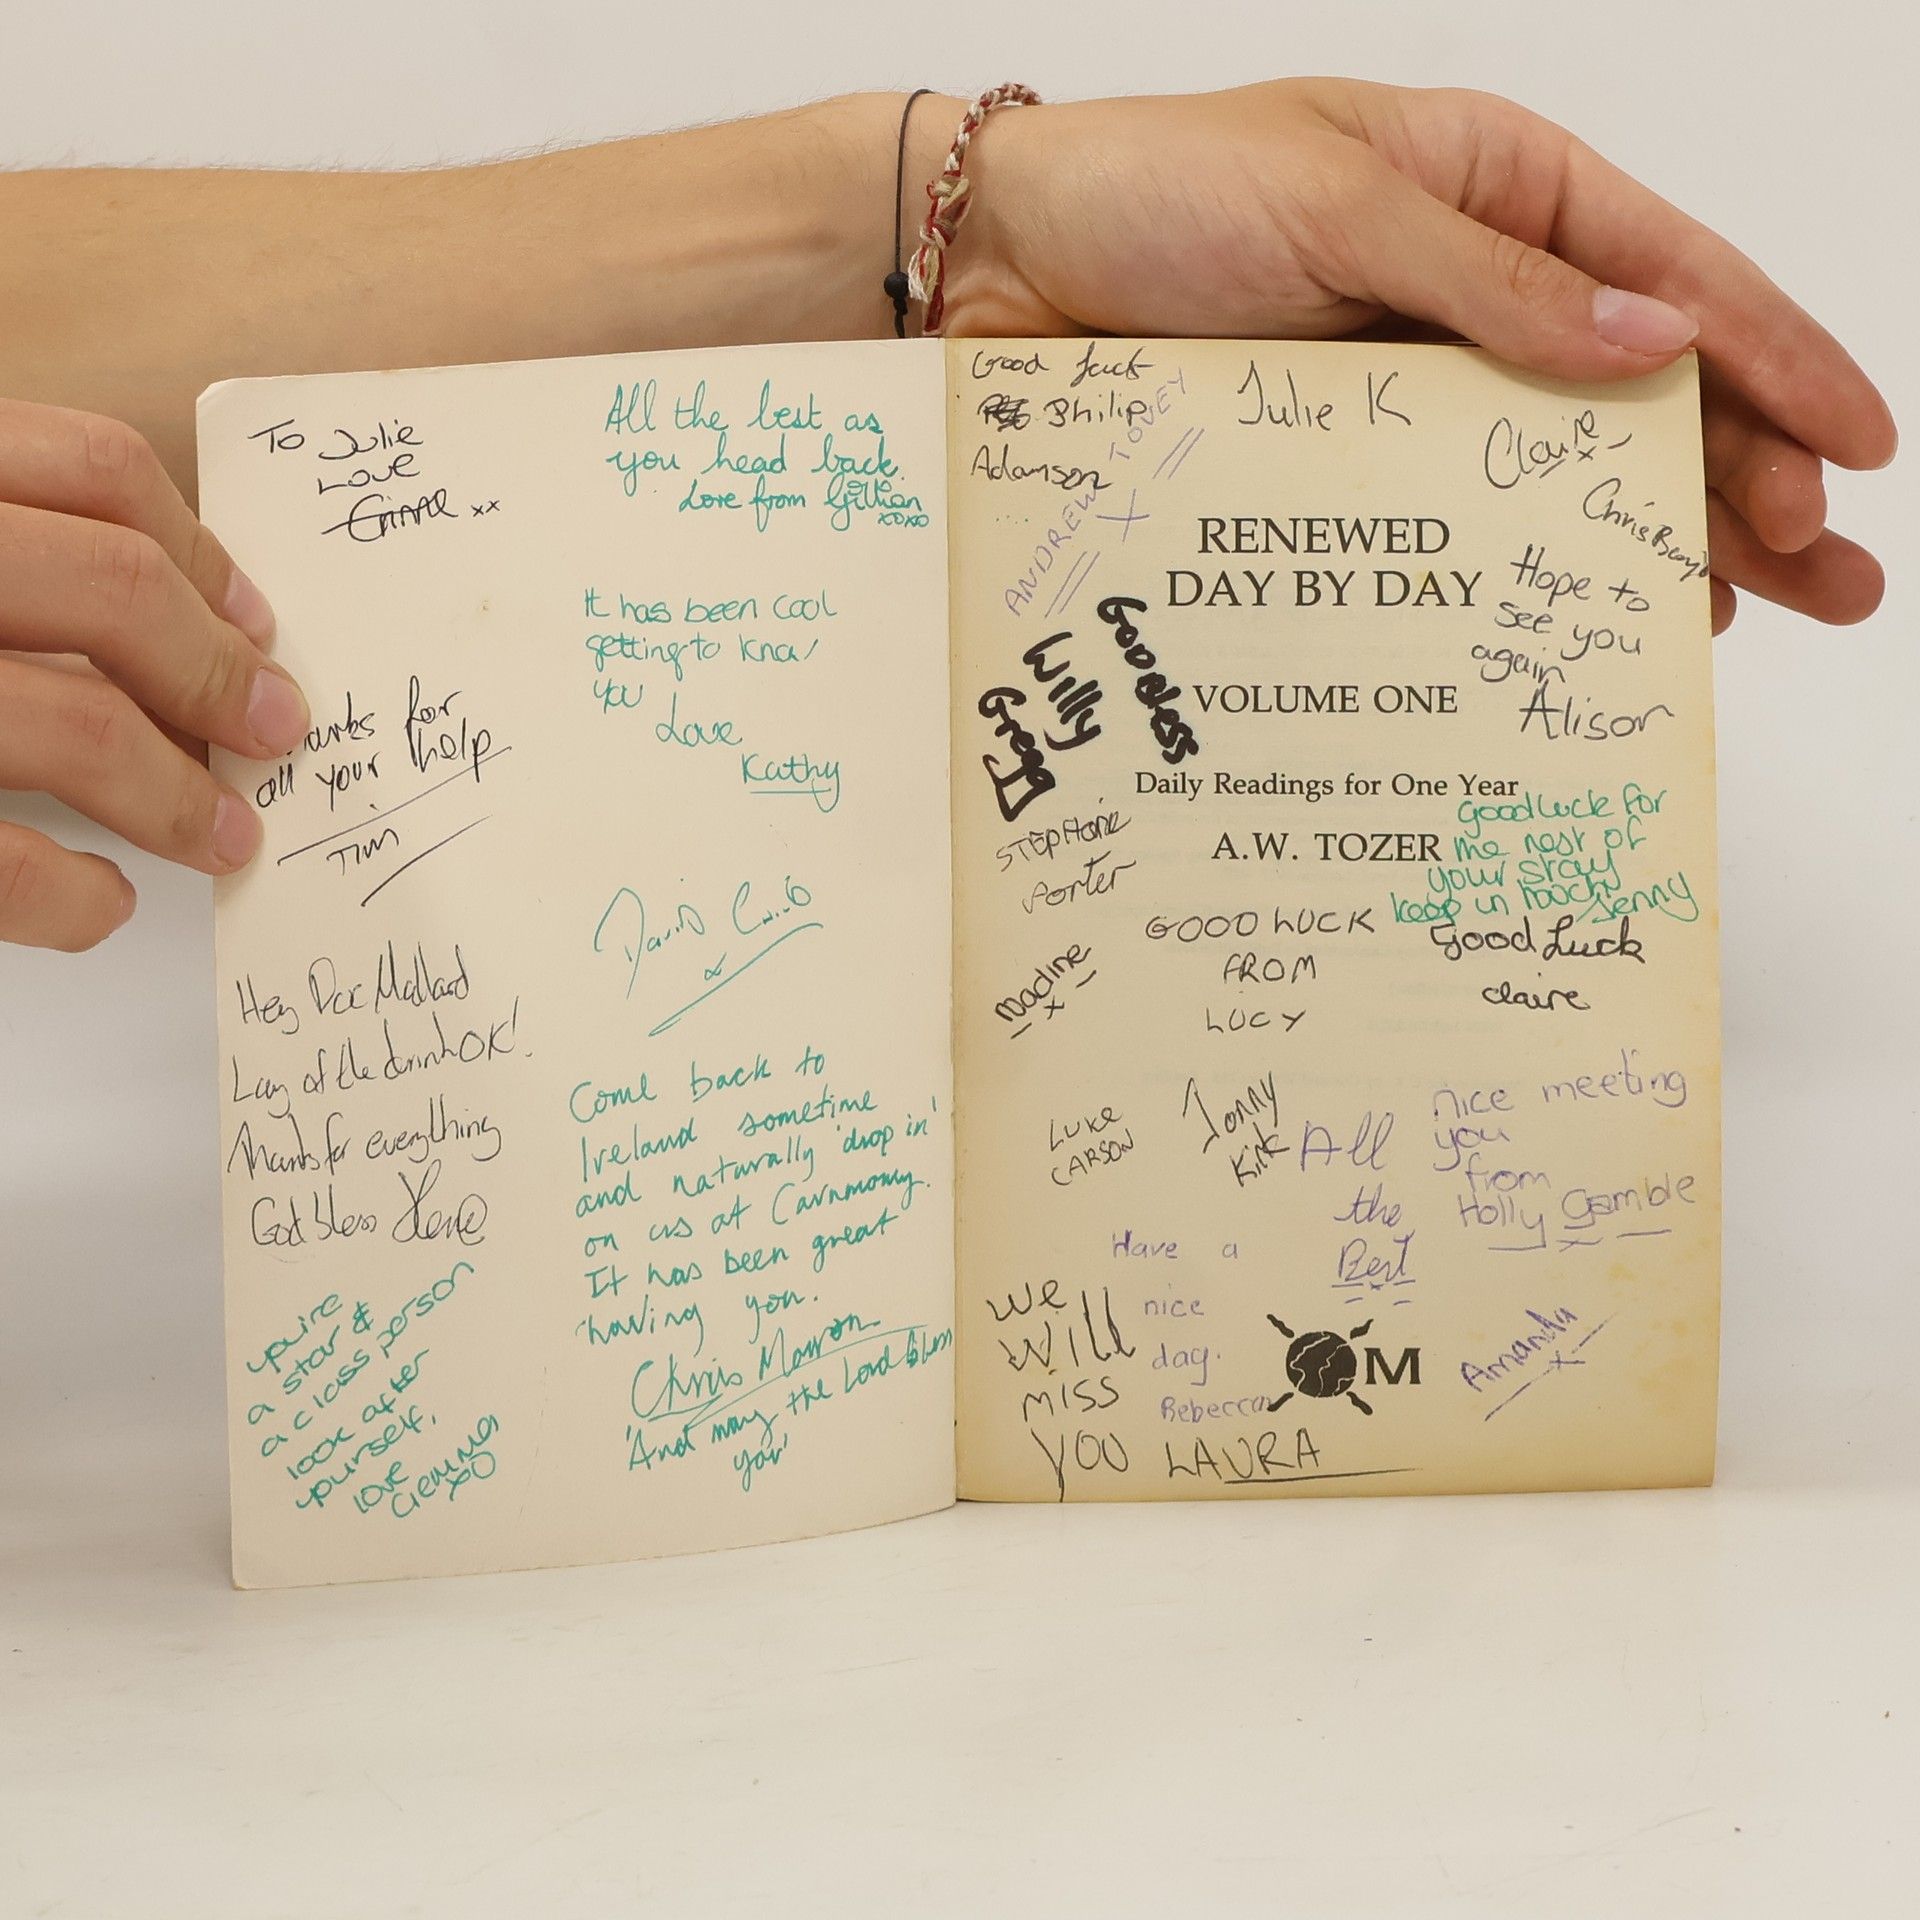 To Julie
Love
xx
All the best as
you head back.
Love from Gillian
xoxo
It has been cool
getting to know
you
Love
Kathy
all your help
for
Tim
David
x
Hey Doc Mallard
Lay of the drink OK!
Thanks for everything
God bless
you're
a star &
a class person
look after
yourself,
love
Gemma
xo
Come back to
Ireland sometime
and naturally 'drop in'
on us at Carnmoney.
It has been great
having you.
Chris
'And may the Lord bless
you'
Good luck
Philip
Adamson
ANDREW TOVEY
X
Julie K
Claire
x
Chris
RENEWED
DAY BY DAY
Hope to
see you
again
Alison
God bless
Willy
Gregg
VOLUME ONE
Daily Readings for One Year
A.W. TOZER
Good luck for
the rest of
your stay
keep in touch
Jenny
STEPHANIE
Porter
GOOD LUCK
FROM
LUCY
Good Luck
claire
Nadine
x
LUKE
CARSON
Jonny
Kirk
All
the
Best
nice meeting
you
from
Holly Gamble
x
Have a
nice
day.
Rebecca
we
will
miss
you LAURA
OM
Amanda
x